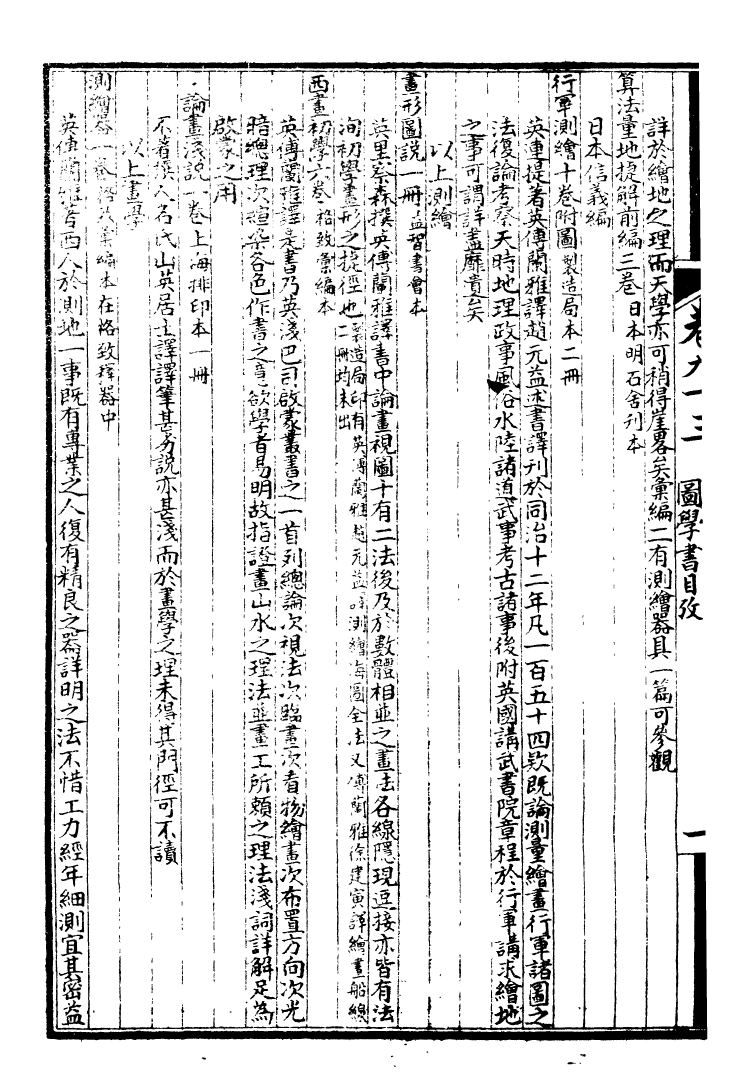 詳於繪地之理而天學亦可稍得崖畧矣彙編二有測繪器具一篇可參觀
算法量地捷解前編三卷 日本明石舍刊本
日本信義編
行軍測繪十卷附圖 製造局本二冊
英連提著英傅蘭雅譯趙元益述書譯刊於同治十二年凡一百五十四欵既論測量繪畫行軍諸圖之
法復論考察天時地理政事風俗水陸諸道武事考古諸事後附英國講武書院章程於行軍講求繪地
之事可謂詳盡靡遺矣
以上測繪
畫形圖說一冊 益智書會本
英里察森撰英傅蘭雅譯書中論畫視圖十有二法後及於數體相並之畫法各線隱現逗接亦皆有法
洵初學畫形之捷徑也 製造局印有英傅蘭雅趙元益譯測繪海圖全法又傅蘭雅徐建寅譯繪畫船線二冊均未出
西畫初學六卷 格致彙編本
英傅蘭雅譯是書乃英淺巴司啟蒙叢書之一首列總論次視法次臨畫次看物繪畫次布置方向次光
暗總理次渲染各色作書之意欲學者易明故指證畫山水之理法並畫工所賴之理法淺詞詳解足為
啟蒙之用
論畫淺說一卷 上海排印本一冊
不著撰人名氏山英居士譯譯筆甚劣說亦甚淺而於畫學之理未得其門徑可不讀
以上畫學
測繪器一卷 格致彙編本在格致釋器中
英傅蘭雅著西人於測地一事既有專業之人復有精良之器詳明之法不惜工力經年細測宜其密益
卷九十三 圖學書目攷 一